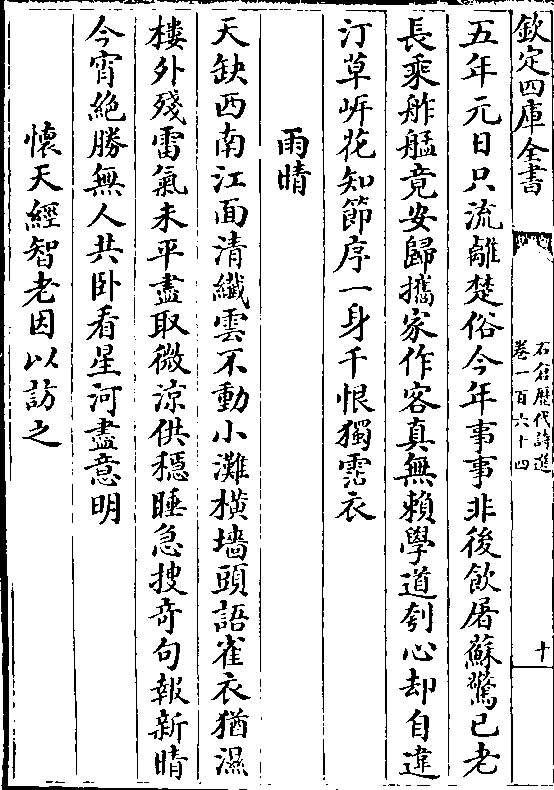 欽定四庫全書
石倉歷代詩選
卷一百六十四
十
五年元日只流離楚俗今年事事非後飲屠蘇驚已老
長乘舴艋竟安歸攜家作客真無賴學道刳心却自違
汀草岍花知節序一身千恨獨霑衣
雨晴
天缺西南江面清纖雲不動小灘橫墻頭語雀衣猶濕
樓外殘雷氣未平盡取微涼供穩睡急搜奇句報新晴
今宵絶勝無人共卧看星河盡意明
懷天經智老因以訪之